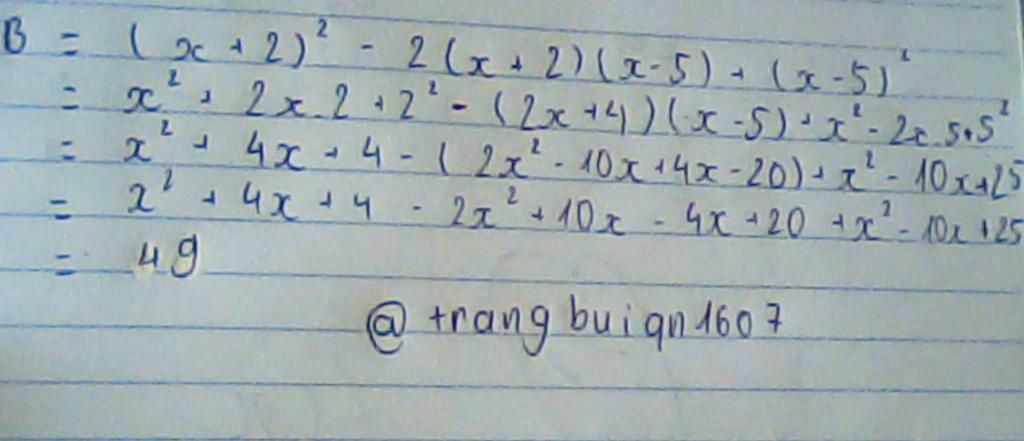 B = (x + 2)² - 2(x + 2)(x - 5) + (x - 5)²
= x² + 2x.2 + 2² - (2x + 4)(x - 5) + x² - 2x.5+5²
= x² + 4x + 4 - (2x² - 10x + 4x - 20) + x² - 10x + 25
= x² + 4x + 4 - 2x² + 10x - 4x + 20 + x² - 10x + 25
= 49
@trangbuiqn1607